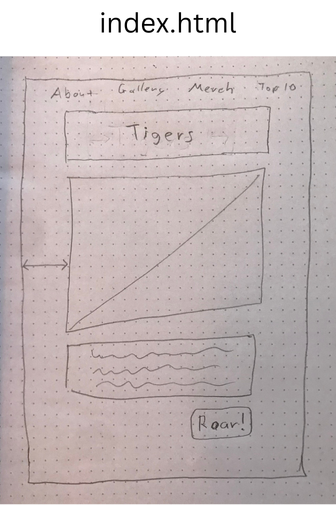 index.html
About Gallery Merch Top 10
Tigers
Roar!